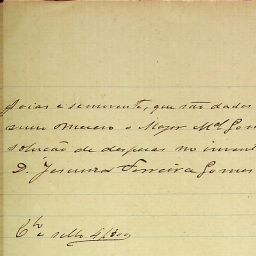 Joias e semovente, que são dados
o Major Mel Gom
solução de despesas no invent
D. Jesuina Ferreira Gomes
e sello 4$800